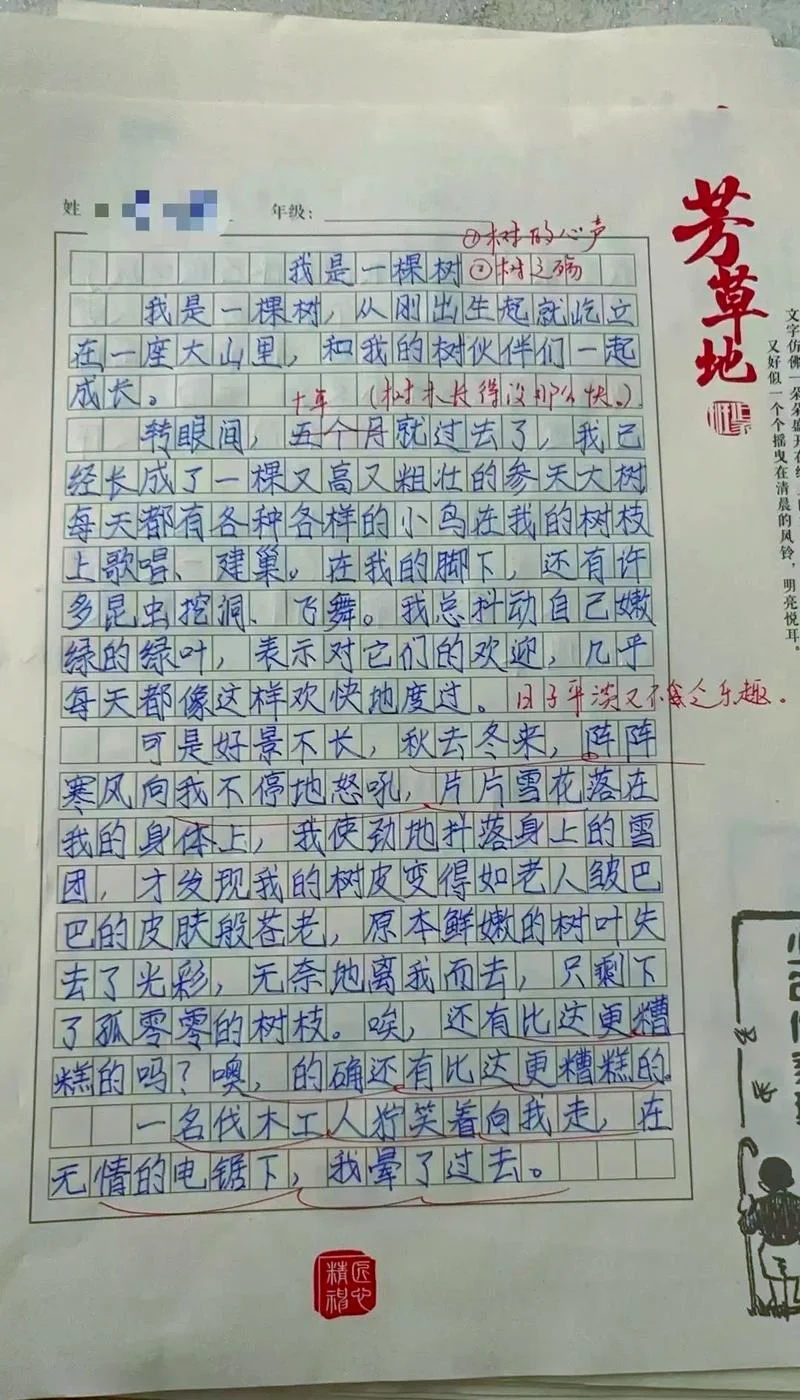 姓
年级：
①树的心声
我是一棵树 ②树之殇
我是一棵树，从刚出生起就屹立
在一座大山里，和我的树伙伴们一起
成长。
十年（树木长得没那么快。）
转眼间，五个月就过去了，我已
经长成了一棵又高又粗壮的参天大树
每天都有各种各样的小鸟在我的树枝
上歌唱、建巢。在我的脚下，还有许
多昆虫挖洞、飞舞。我总抖动自己嫩
绿的绿叶，表示对它们的欢迎，几乎
每天都像这样欢快地度过。日子平淡又不失乐趣。
可是好景不长，秋去冬来，阵阵
寒风向我不停地怒吼，片片雪花落在
我的身体上，我使劲地抖落身上的雪
团，才发现我的树皮变得如老人皱巴
巴的皮肤般苍老，原本鲜嫩的树叶失
去了光彩，无奈地离我而去，只剩下
了孤零零的树枝。唉，还有比这更糟
糕的吗？噢，的确还有比这更糟糕的。
一名伐木工人狞笑着向我走，在
无情的电锯下，我晕了过去。
芳草地
文字仿佛一朵朵盛开在
又好似一个个摇曳在清晨的风铃，明亮悦耳。
匠心
精神